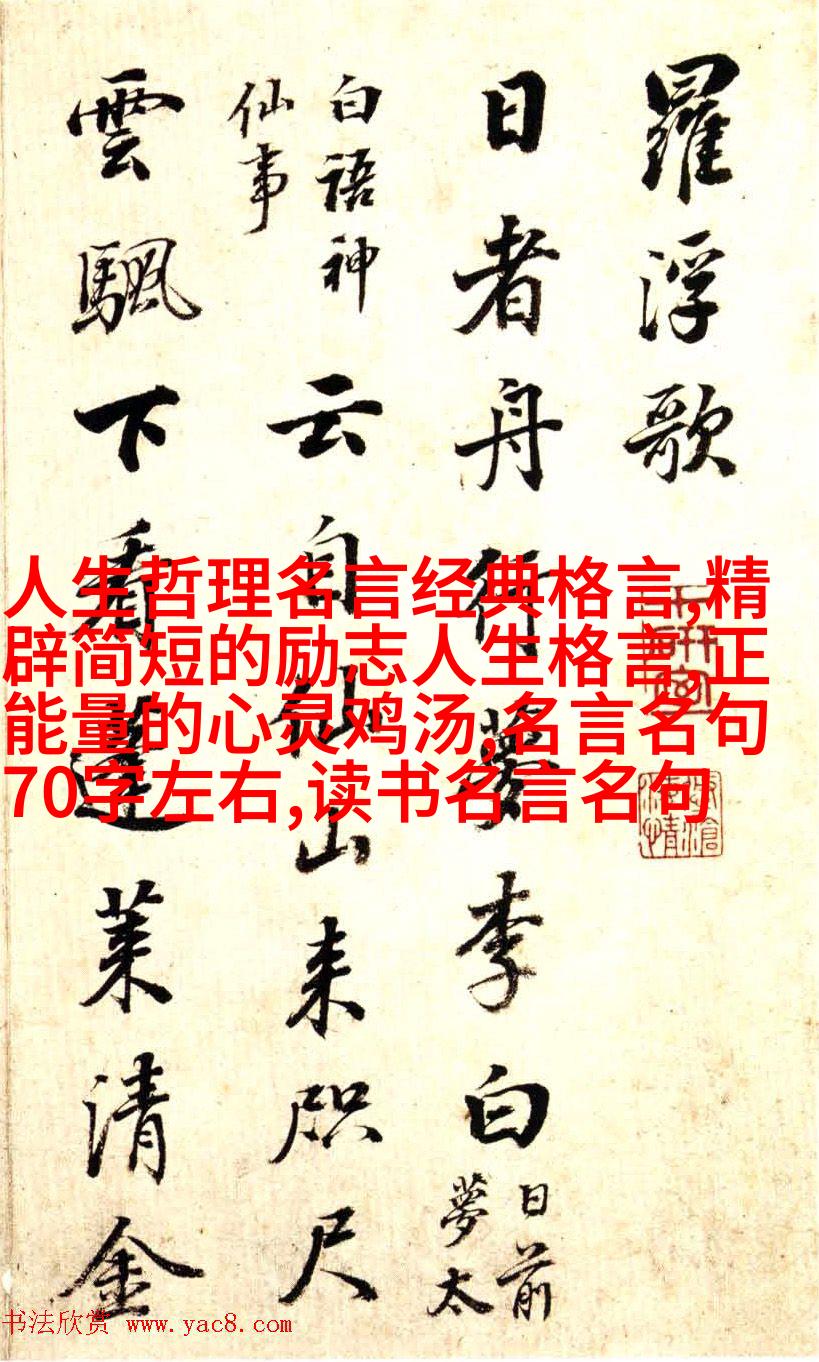 羅浮歌
日者舟行夢李白
日前
夢太
白語神
仙事
云自仙山来咫尺
雲颿下看蓬莱清金
人生哲理名言经典格言,精
辟简短的励志人生格言,正
能量的心灵鸡汤,名言名句
70字左右,读书名言名句
书法欣赏 www.yac8.com